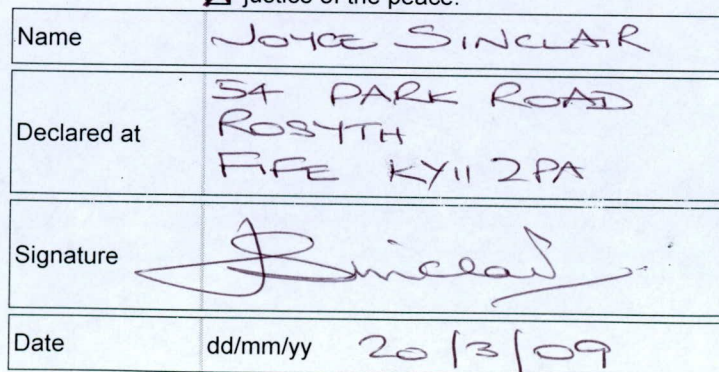 justice of the peace.
Name JOYCE SINCLAIR
Declared at 54 PARK ROAD
ROSYTH
FIFE KY11 2PA
Signature JSinclair
Date dd/mm/yy 20/3/09